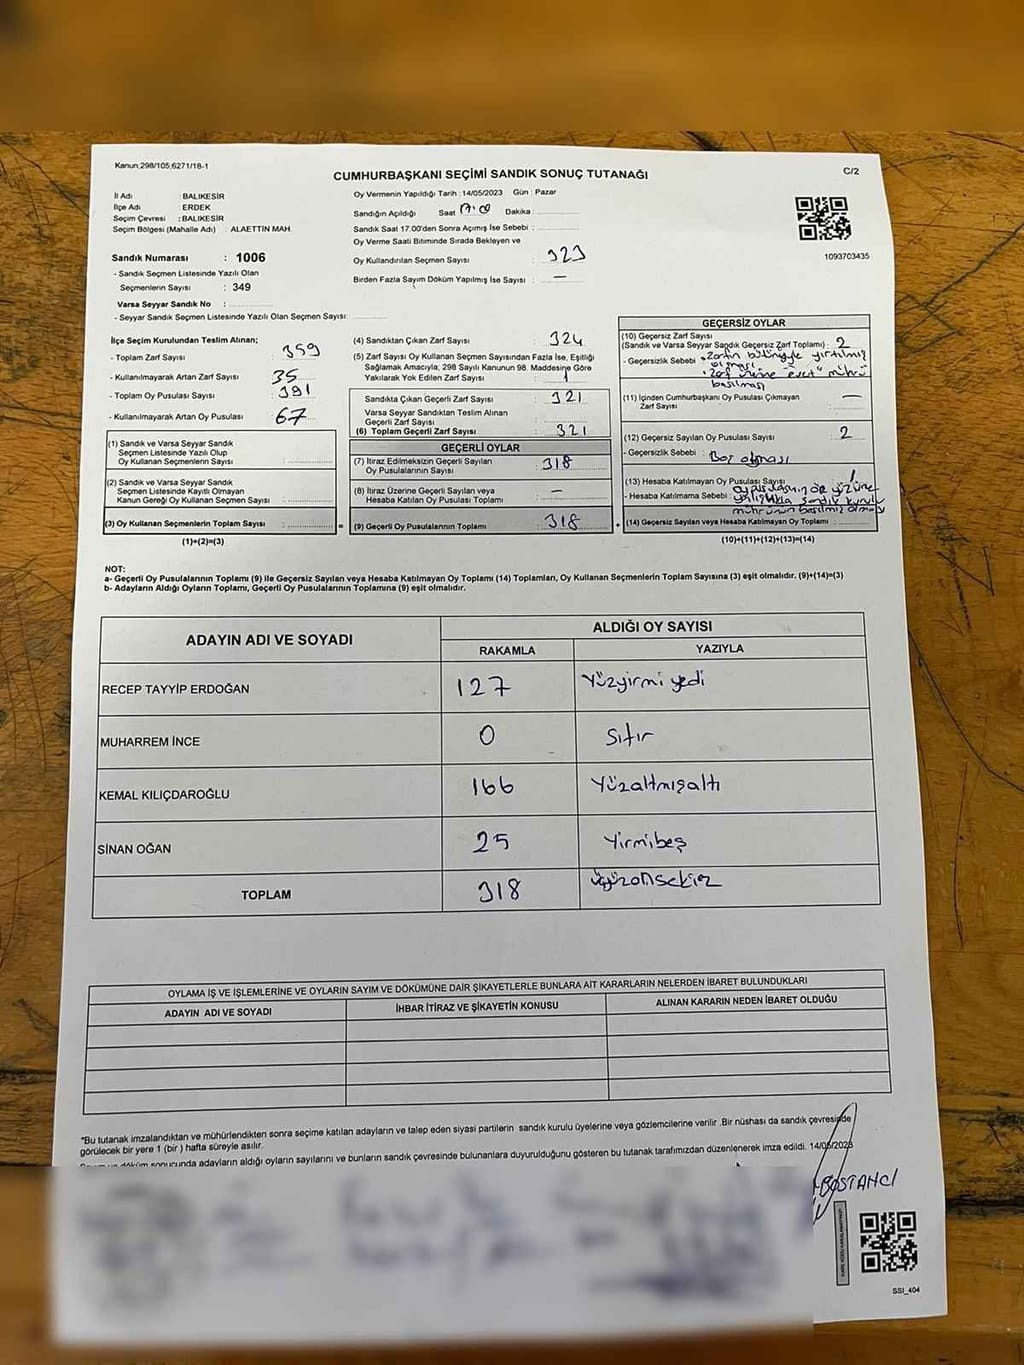 Kanun;298/105;6271/18-1
CUMHURBAŞKANI SEÇİMİ SANDIK SONUÇ TUTANAĞI
C/2
İl Adı : BALIKESİR
İlçe Adı : ERDEK
Seçim Çevresi : BALIKESİR
Seçim Bölgesi (Mahalle Adı) : ALAETTİN MAH.
Sandık Numarası : 1006
- Sandık Seçmen Listesinde Yazılı Olan
Seçmenlerin Sayısı : 349
Varsa Seyyar Sandık No :
- Seyyar Sandık Seçmen Listesinde Yazılı Olan Seçmen Sayısı:
Oy Vermenin Yapıldığı Tarih : 14/05/2023 Gün : Pazar
Sandığın Açıldığı Saat Dakika :
Sandık Saat 17.00'den Sonra Açımış İse Sebebi :
Oy Verme Saati Bitiminde Sırada Bekleyen ve
Oy Kullandırılan Seçmen Sayısı : 323
Birden Fazla Sayım Döküm Yapılmış İse Sayısı : —
1093703435
İlçe Seçim Kurulundan Teslim Alınan;
- Toplam Zarf Sayısı : 359
- Kullanılmayarak Artan Zarf Sayısı : 35
- Toplam Oy Pusulası Sayısı : 391
- Kullanılmayarak Artan Oy Pusulası : 67
(1) Sandık ve Varsa Seyyar Sandık
Seçmen Listesinde Yazılı Olup
Oy Kullanan Seçmenlerin Sayısı :
(2) Sandık ve Varsa Seyyar Sandık
Seçmen Listesinde Kayıtlı Olmayan
Kanun Gereği Oy Kullanan Seçmen Sayısı :
(3) Oy Kullanan Seçmenlerin Toplam Sayısı :
(1)+(2)=(3)
(4) Sandıktan Çıkan Zarf Sayısı : 324
(5) Zarf Sayısı Oy Kullanan Seçmen Sayısından Fazla İse, Eşitliği
Sağlamak Amacıyla, 298 Sayılı Kanunun 98. Maddesine Göre
Yakılarak Yok Edilen Zarf Sayısı : 1
Sandıkta Çıkan Geçerli Zarf Sayısı : 321
Varsa Seyyar Sandıktan Teslim Alınan
Geçerli Zarf Sayısı :
(6) Toplam Geçerli Zarf Sayısı : 321
GEÇERLİ OYLAR
(7) İtiraz Edilmeksizin Geçerli Sayılan
Oy Pusulalarının Sayısı : 318
(8) İtiraz Üzerine Geçerli Sayılan veya
Hesaba Katılan Oy Pusulası Toplamı : —
= (9) Geçerli Oy Pusulalarının Toplamı : 318
GEÇERSİZ OYLAR
(10) Geçersiz Zarf Sayısı
(Sandık ve Varsa Seyyar Sandık Geçersiz Zarf Toplamı) : 2
- Geçersizlik Sebebi : . Zarfın bütünüyle yırtılmış
olması
. Zarf üzerine "evet" mührü
basılması
(11) İçinden Cumhurbaşkanı Oy Pusulası Çıkmayan
Zarf Sayısı : —
(12) Geçersiz Sayılan Oy Pusulası Sayısı : 2
- Geçersizlik Sebebi : Boş olması
(13) Hesaba Katılmayan Oy Pusulası Sayısı : 1
- Hesaba Katılmama Sebebi : oy pusulasının ön yüzüne
yanlışlıkla sandık kurulu
mührünün basılmış olması
+ (14) Geçersiz Sayılan veya Hesaba Katılmayan Oy Toplamı :
(10)+(11)+(12)+(13)=(14)
NOT:
a- Geçerli Oy Pusulalarının Toplamı (9) ile Geçersiz Sayılan veya Hesaba Katılmayan Oy Toplamı (14) Toplamları, Oy Kullanan Seçmenlerin Toplam Sayısına (3) eşit olmalıdır. (9)+(14)=(3)
b- Adayların Aldığı Oyların Toplamı, Geçerli Oy Pusulalarının Toplamına (9) eşit olmalıdır.
ADAYIN ADI VE SOYADI ALDIĞI OY SAYISI
RAKAMLA YAZIYLA
RECEP TAYYİP ERDOĞAN 127 Yüzyirmi yedi
MUHARREM İNCE 0 Sıfır
KEMAL KILIÇDAROĞLU 166 Yüzaltmışaltı
SİNAN OĞAN 25 Yirmibeş
TOPLAM 318 üçyüzonsekiz
OYLAMA İŞ VE İŞLEMLERİNE VE OYLARIN SAYIM VE DÖKÜMÜNE DAİR ŞİKAYETLERLE BUNLARA AİT KARARLARIN NELERDEN İBARET BULUNDUKLARI
ADAYIN ADI VE SOYADI İHBAR İTİRAZ VE ŞİKAYETİN KONUSU ALINAN KARARIN NEDEN İBARET OLDUĞU
*Bu tutanak imzalandıktan ve mühürlendikten sonra seçime katılan adayların ve talep eden siyasi partilerin sandık kurulu üyelerine veya gözlemcilerine verilir .Bir nüshası da sandık çevresinde
görülecek bir yere 1 (bir ) hafta süreyle asılır.
sonucunda adayların aldığı oyların sayılarını ve bunların sandık çevresinde bulunanlara duyurulduğunu gösteren bu tutanak tarafımızdan düzenlenerek imza edildi. 14/05/2023
BOSTANCI
SSİ_404